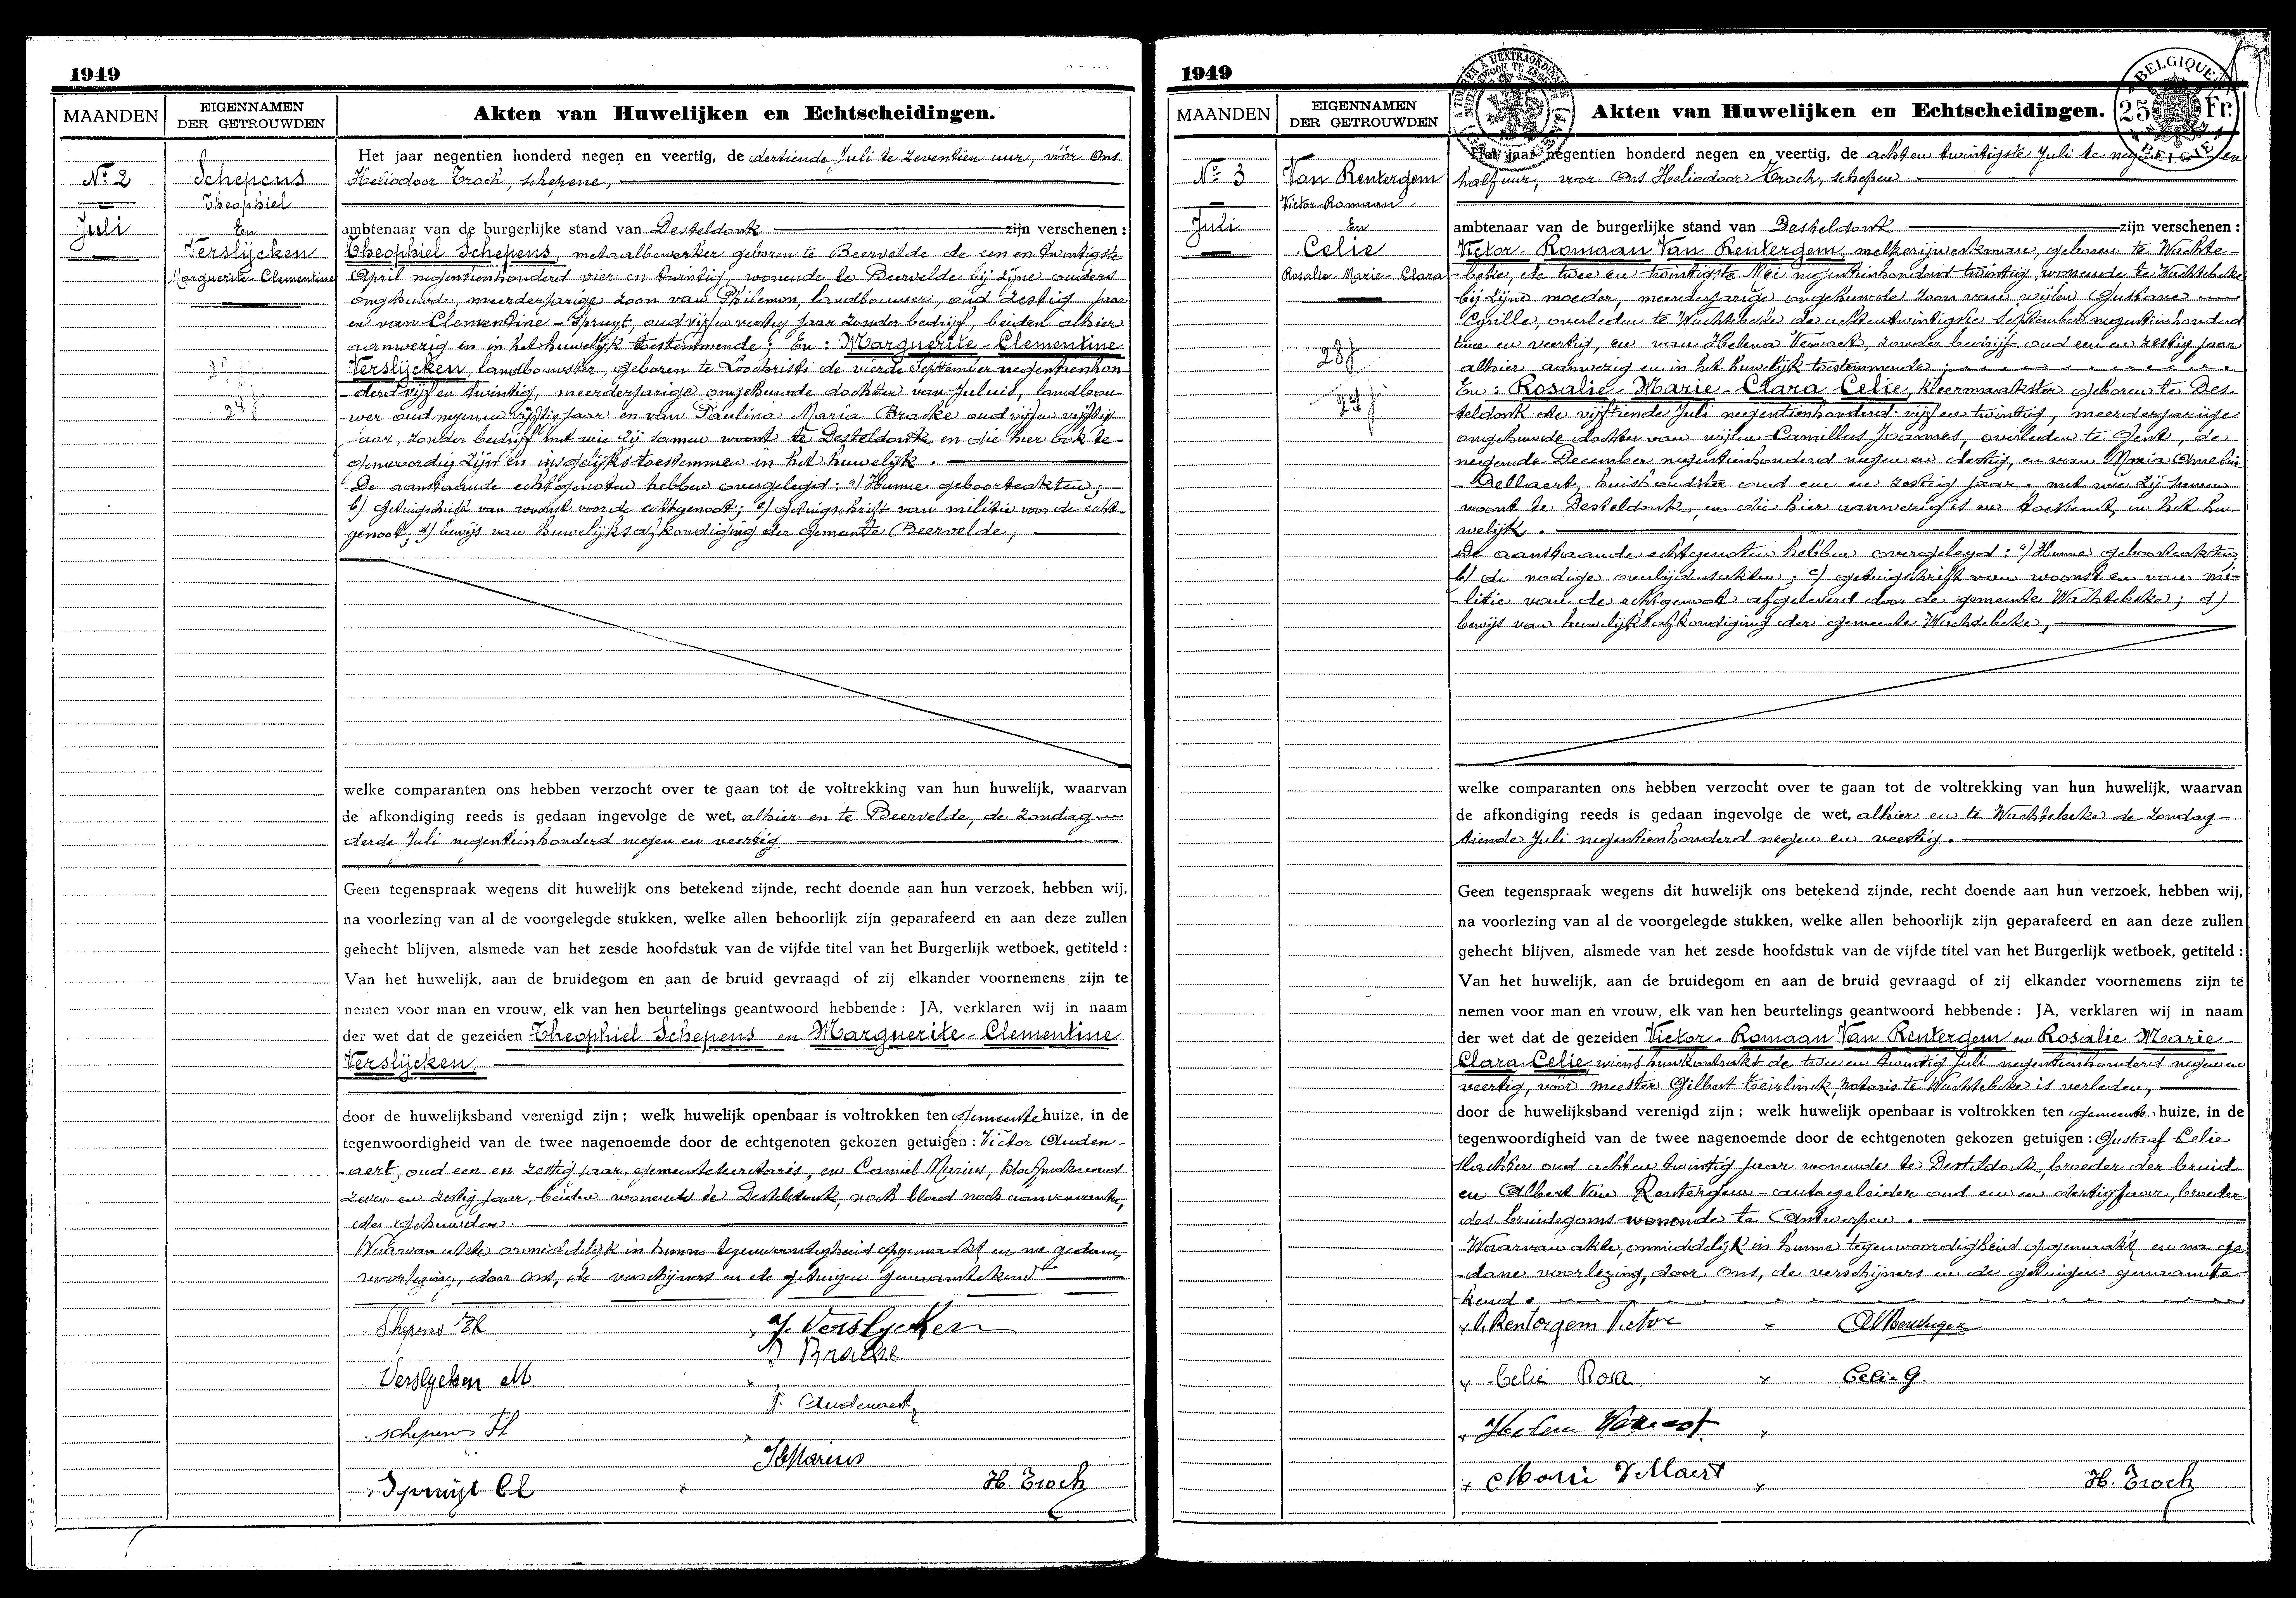 1949
MAANDEN
EIGENNAMEN
DER GETROUWDEN
Akten van Huwelijken en Echtscheidingen.
Nº 2
Juli
Schepens
Theophiel
En
Verslijcken
Marguerite-Clementine
28 f
29 f
Het jaar negentien honderd negen en veertig, de dertiende Juli te zeventien uur, vóór Ons
Heliodoor Troch, schepene,
ambtenaar van de burgerlijke stand van Desteldonk zijn verschenen :
Theophiel Schepens, metaalbewerker geboren te Beervelde de een en twintigste
April negentienhonderd vier en twintig, wonende te Beervelde bij zijne ouders
ongehuwde, meerderjarige zoon van Philemon, landbouwer, oud zestig jaar
en van Clementine-Spruyt, oud vijf en veertig jaar zonder bedrijf, beiden alhier
aanwezig en in het huwelijk toestemmende; En : Marguerite-Clementine
Verslijcken, landbouwster, geboren te Loochristi de vierde September negentienhon-
derd vijf en twintig, meerderjarige ongehuwde dochter van Juluis, landbou-
wer oud negen en vijftig jaar en van Paulina Maria Bracke oud vijf en vijftig
jaar, zonder bedrijf met wie zij samen woont te Desteldonk en die hier ook te-
genwoordig zijn en insgelijks toestemmen in het huwelijk.
De aanstaande echtgenoten hebben overgelegd : a) Hunne geboorteakten;
b) getuigschrift van woonst voor de echtgenoot; c) getuigschrift van militie voor de echt-
genoot; d) bewijs van huwelijksafkondiging der gemeente Beervelde,
welke comparanten ons hebben verzocht over te gaan tot de voltrekking van hun huwelijk, waarvan
de afkondiging reeds is gedaan ingevolge de wet, alhier en te Beervelde, de zondag
derde Juli negentienhonderd negen en veertig
Geen tegenspraak wegens dit huwelijk ons betekend zijnde, recht doende aan hun verzoek, hebben wij,
na voorlezing van al de voorgelegde stukken, welke allen behoorlijk zijn geparafeerd en aan deze zullen
gehecht blijven, alsmede van het zesde hoofdstuk van de vijfde titel van het Burgerlijk wetboek, getiteld :
Van het huwelijk, aan de bruidegom en aan de bruid gevraagd of zij elkander voornemens zijn te
nemen voor man en vrouw, elk van hen beurtelings geantwoord hebbende : JA, verklaren wij in naam
der wet dat de gezeiden Theophiel Schepens en Marguerite-Clementine
Verslijcken,
door de huwelijksband verenigd zijn ; welk huwelijk openbaar is voltrokken ten gemeentehuize, in de
tegenwoordigheid van de twee nagenoemde door de echtgenoten gekozen getuigen : Victor Auden-
aert, oud een en zestig jaar, gemeentesecretaris, en Camiel Marius, oud
zeven en zestig jaar, beiden wonende te Desteldonk, noch bloed noch aanverwanten,
der gehuwden.
Waarvan akte onmiddelijk in hunne tegenwoordigheid opgemaakt en na gedane
voorlezing, door ons, de verschijners en de getuigen genaamtekend
Schepens Th
J. Verslycken
P Bracke
Verslycken M.
V. Audenaert
schepens Fl
Marius
Spruijt Cl
H. Troch
1949
MAANDEN
EIGENNAMEN
DER GETROUWDEN
Akten van Huwelijken en Echtscheidingen.
BELGIQUE
25 Fr.
BELGIË
Nº 3
Juli
Van Rentergem
Victor-Romaan
En
Celie
Rosalie-Marie-Clara
28 f
29 f
Het jaar negentien honderd negen en veertig, de acht en twintigste Juli te negen en
half uur, voor Ons Heliodoor Troch, schepen
ambtenaar van de burgerlijke stand van Desteldonk zijn verschenen :
Victor-Romaan Van Rentergem, melkerijwerkman, geboren te Wachte-
beke, de twee en twintigste Mei negentienhonderd twintig, wonende te Wachtebeke
bij zijne moeder, meerderjarige ongehuwde zoon van wijlen Gustave
Cyrille, overleden te Wachtebeke de acht en twintigste September negentienhonderd
twee en veertig, en van Helena Vervaet, zonder bedrijf oud een en zestig jaar
alhier aanwezig en in het huwelijk toestemmende;
En : Rosalie-Marie-Clara Celie, kleermaakster geboren te Des-
teldonk de vijftiende Juli negentienhonderd vijf en twintig, meerderjarige
ongehuwde dochter van wijlen Camillus Joannes, overleden te Gent, de
negende December negentienhonderd negen en dertig, en van Maria Omelia
Dellaert, huishoudster oud een en zestig jaar, met wie zij samen
woont te Desteldonk, en die hier aanwezig is en toestemt in het hu-
welijk.
De aanstaande echtgenoten hebben overgelegd : a) Hunne geboorteakten;
b) de nodige overlijdensakten; c) getuigschrift van woonst en van mi-
litie voor de echtgenoot afgeleverd door de gemeente Wachtebeke; d)
bewijs van huwelijksafkondiging der gemeente Wachtebeke,
welke comparanten ons hebben verzocht over te gaan tot de voltrekking van hun huwelijk, waarvan
de afkondiging reeds is gedaan ingevolge de wet, alhier en te Wachtebeke de Zondag
tiende Juli negentienhonderd negen en veertig.
Geen tegenspraak wegens dit huwelijk ons betekend zijnde, recht doende aan hun verzoek, hebben wij,
na voorlezing van al de voorgelegde stukken, welke allen behoorlijk zijn geparafeerd en aan deze zullen
gehecht blijven, alsmede van het zesde hoofdstuk van de vijfde titel van het Burgerlijk wetboek, getiteld :
Van het huwelijk, aan de bruidegom en aan de bruid gevraagd of zij elkander voornemens zijn te
nemen voor man en vrouw, elk van hen beurtelings geantwoord hebbende : JA, verklaren wij in naam
der wet dat de gezeiden Victor-Romaan Van Rentergem en Rosalie Marie
Clara Celie, wiens huwkontrakt de twee en twintig Juli negentienhonderd negen en
veertig, vóór meester Gilbert Teirlinck, notaris te Wachtebeke is verleden,
door de huwelijksband verenigd zijn ; welk huwelijk openbaar is voltrokken ten gemeentehuize, in de
tegenwoordigheid van de twee nagenoemde door de echtgenoten gekozen getuigen : Gustaf Celie
slachter oud acht en twintig jaar wonende te Desteldonk, broeder der bruid
en Albert Van Rentergem-autogeleider oud een en dertig jaar, broeder
des bruidegoms wonende te Antwerpen.
Waarvan akte, onmiddelijk in hunne tegenwoordigheid opgemaakt en na ge-
dane voorlezing, door ons, de verschijners en de getuigen genaamte-
kend.
V. Rentergem Victor
AVRentergem
Celie Rosa
Celie G.
Helena Vervaet
Marie Dellaert
H. Troch